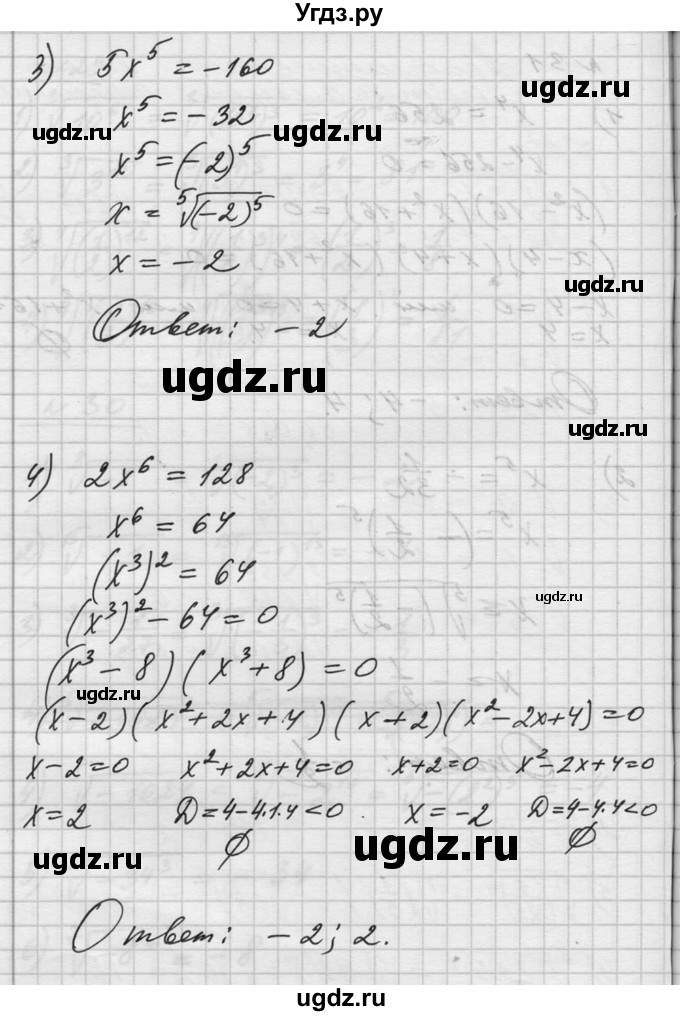 Угдз.ру
3) 5x⁵ = -160
x⁵ = -32
ugdz.ru
ugdz.ru
ugdz.ru
x⁵ = (-2)⁵
x = ⁵√(-2)⁵
ugdz.ru
x = -2
ugdz.ru
Ответ: -2
ugdz.ru
ugdz.ru
4) 2x⁶ = 128
x⁶ = 64
(x³)² = 64
ugdz.ru
(x³)² - 64 = 0
(x³ - 8)(x³ + 8) = 0
ugdz.ru
(x-2)(x² + 2x + 4)(x+2)(x² - 2x + 4) = 0
x-2=0 x²+2x+4=0 x+2=0 x²-2x+4=0
x=2 D=4-4·1·4<0 x=-2 D=4-4·4<0
∅ ∅
ugdz.ru
ugdz.ru
Ответ: -2; 2.
ugdz.ru